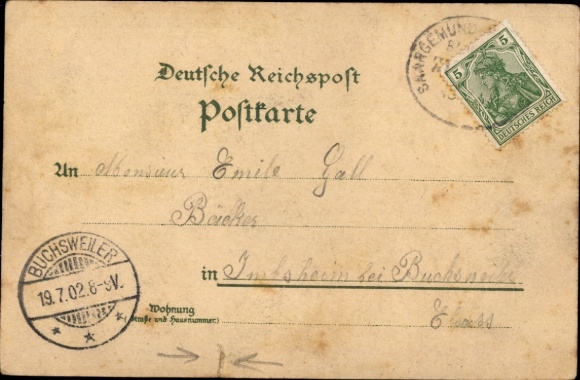 SAARGEMÜND
5 5
DEUTSCHES REICH
Deutsche Reichspost
Postkarte
An Monsieur Emile Gall
Bäcker
in Imbsheim bei Buchsweiler
Elsass
Wohnung
(Straße und Hausnummer)
BUCHSWEILER
19.7.02.8-9V.